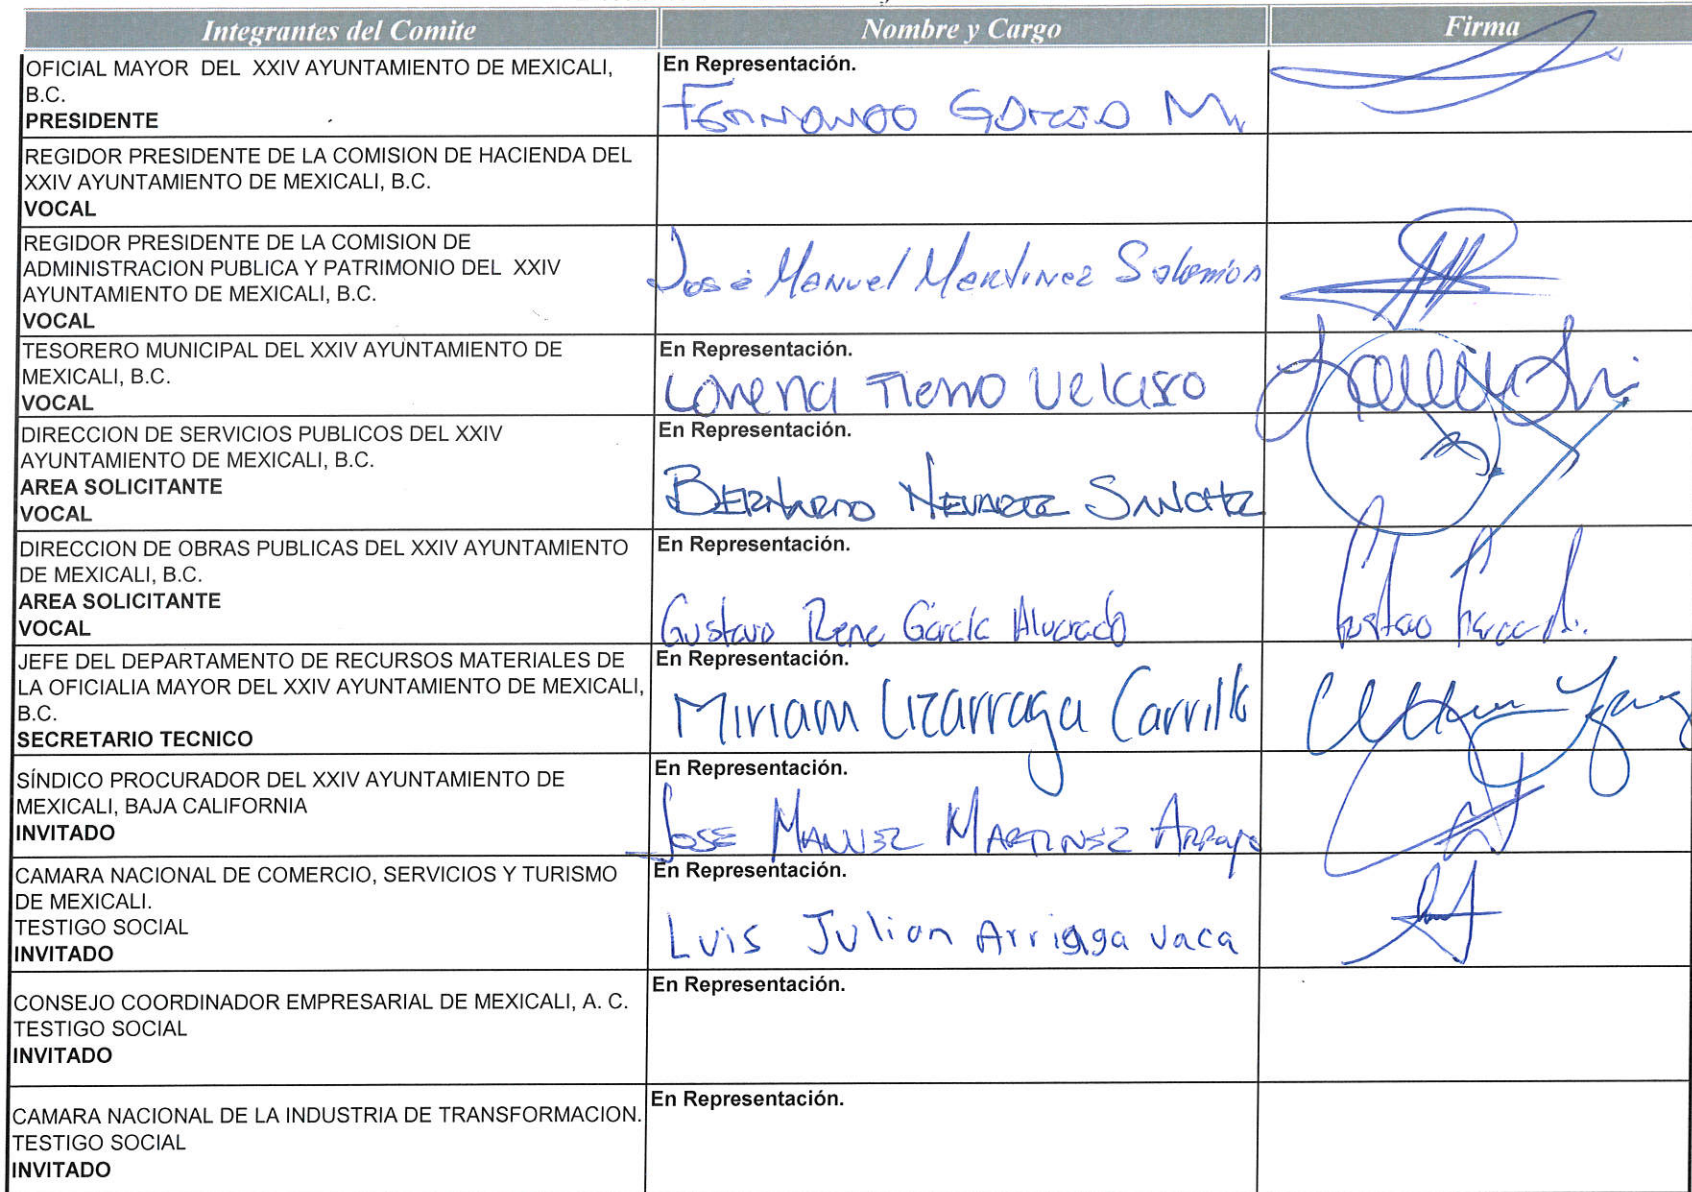 Integrantes del Comite Nombre y Cargo Firma
OFICIAL MAYOR DEL XXIV AYUNTAMIENTO DE MEXICALI,
B.C.
PRESIDENTE
En Representación.
Fernando García M.
REGIDOR PRESIDENTE DE LA COMISION DE HACIENDA DEL
XXIV AYUNTAMIENTO DE MEXICALI, B.C.
VOCAL
REGIDOR PRESIDENTE DE LA COMISION DE
ADMINISTRACION PUBLICA Y PATRIMONIO DEL XXIV
AYUNTAMIENTO DE MEXICALI, B.C.
VOCAL
José Manuel Martinez Salomón
TESORERO MUNICIPAL DEL XXIV AYUNTAMIENTO DE
MEXICALI, B.C.
VOCAL
En Representación.
Lorena Tierro Velasco
DIRECCION DE SERVICIOS PUBLICOS DEL XXIV
AYUNTAMIENTO DE MEXICALI, B.C.
AREA SOLICITANTE
VOCAL
En Representación.
BERNARDO NEVAREZ SANCHEZ
DIRECCION DE OBRAS PUBLICAS DEL XXIV AYUNTAMIENTO
DE MEXICALI, B.C.
AREA SOLICITANTE
VOCAL
En Representación.
Gustavo Rene García Alvarado
JEFE DEL DEPARTAMENTO DE RECURSOS MATERIALES DE
LA OFICIALIA MAYOR DEL XXIV AYUNTAMIENTO DE MEXICALI,
B.C.
SECRETARIO TECNICO
En Representación.
Miriam Lizarraga Carrillo
SÍNDICO PROCURADOR DEL XXIV AYUNTAMIENTO DE
MEXICALI, BAJA CALIFORNIA
INVITADO
En Representación.
JOSE MANUEL MARTINEZ ARROYO
CAMARA NACIONAL DE COMERCIO, SERVICIOS Y TURISMO
DE MEXICALI.
TESTIGO SOCIAL
INVITADO
En Representación.
Luis Julian Arriaga vaca
CONSEJO COORDINADOR EMPRESARIAL DE MEXICALI, A. C.
TESTIGO SOCIAL
INVITADO
En Representación.
CAMARA NACIONAL DE LA INDUSTRIA DE TRANSFORMACION.
TESTIGO SOCIAL
INVITADO
En Representación.